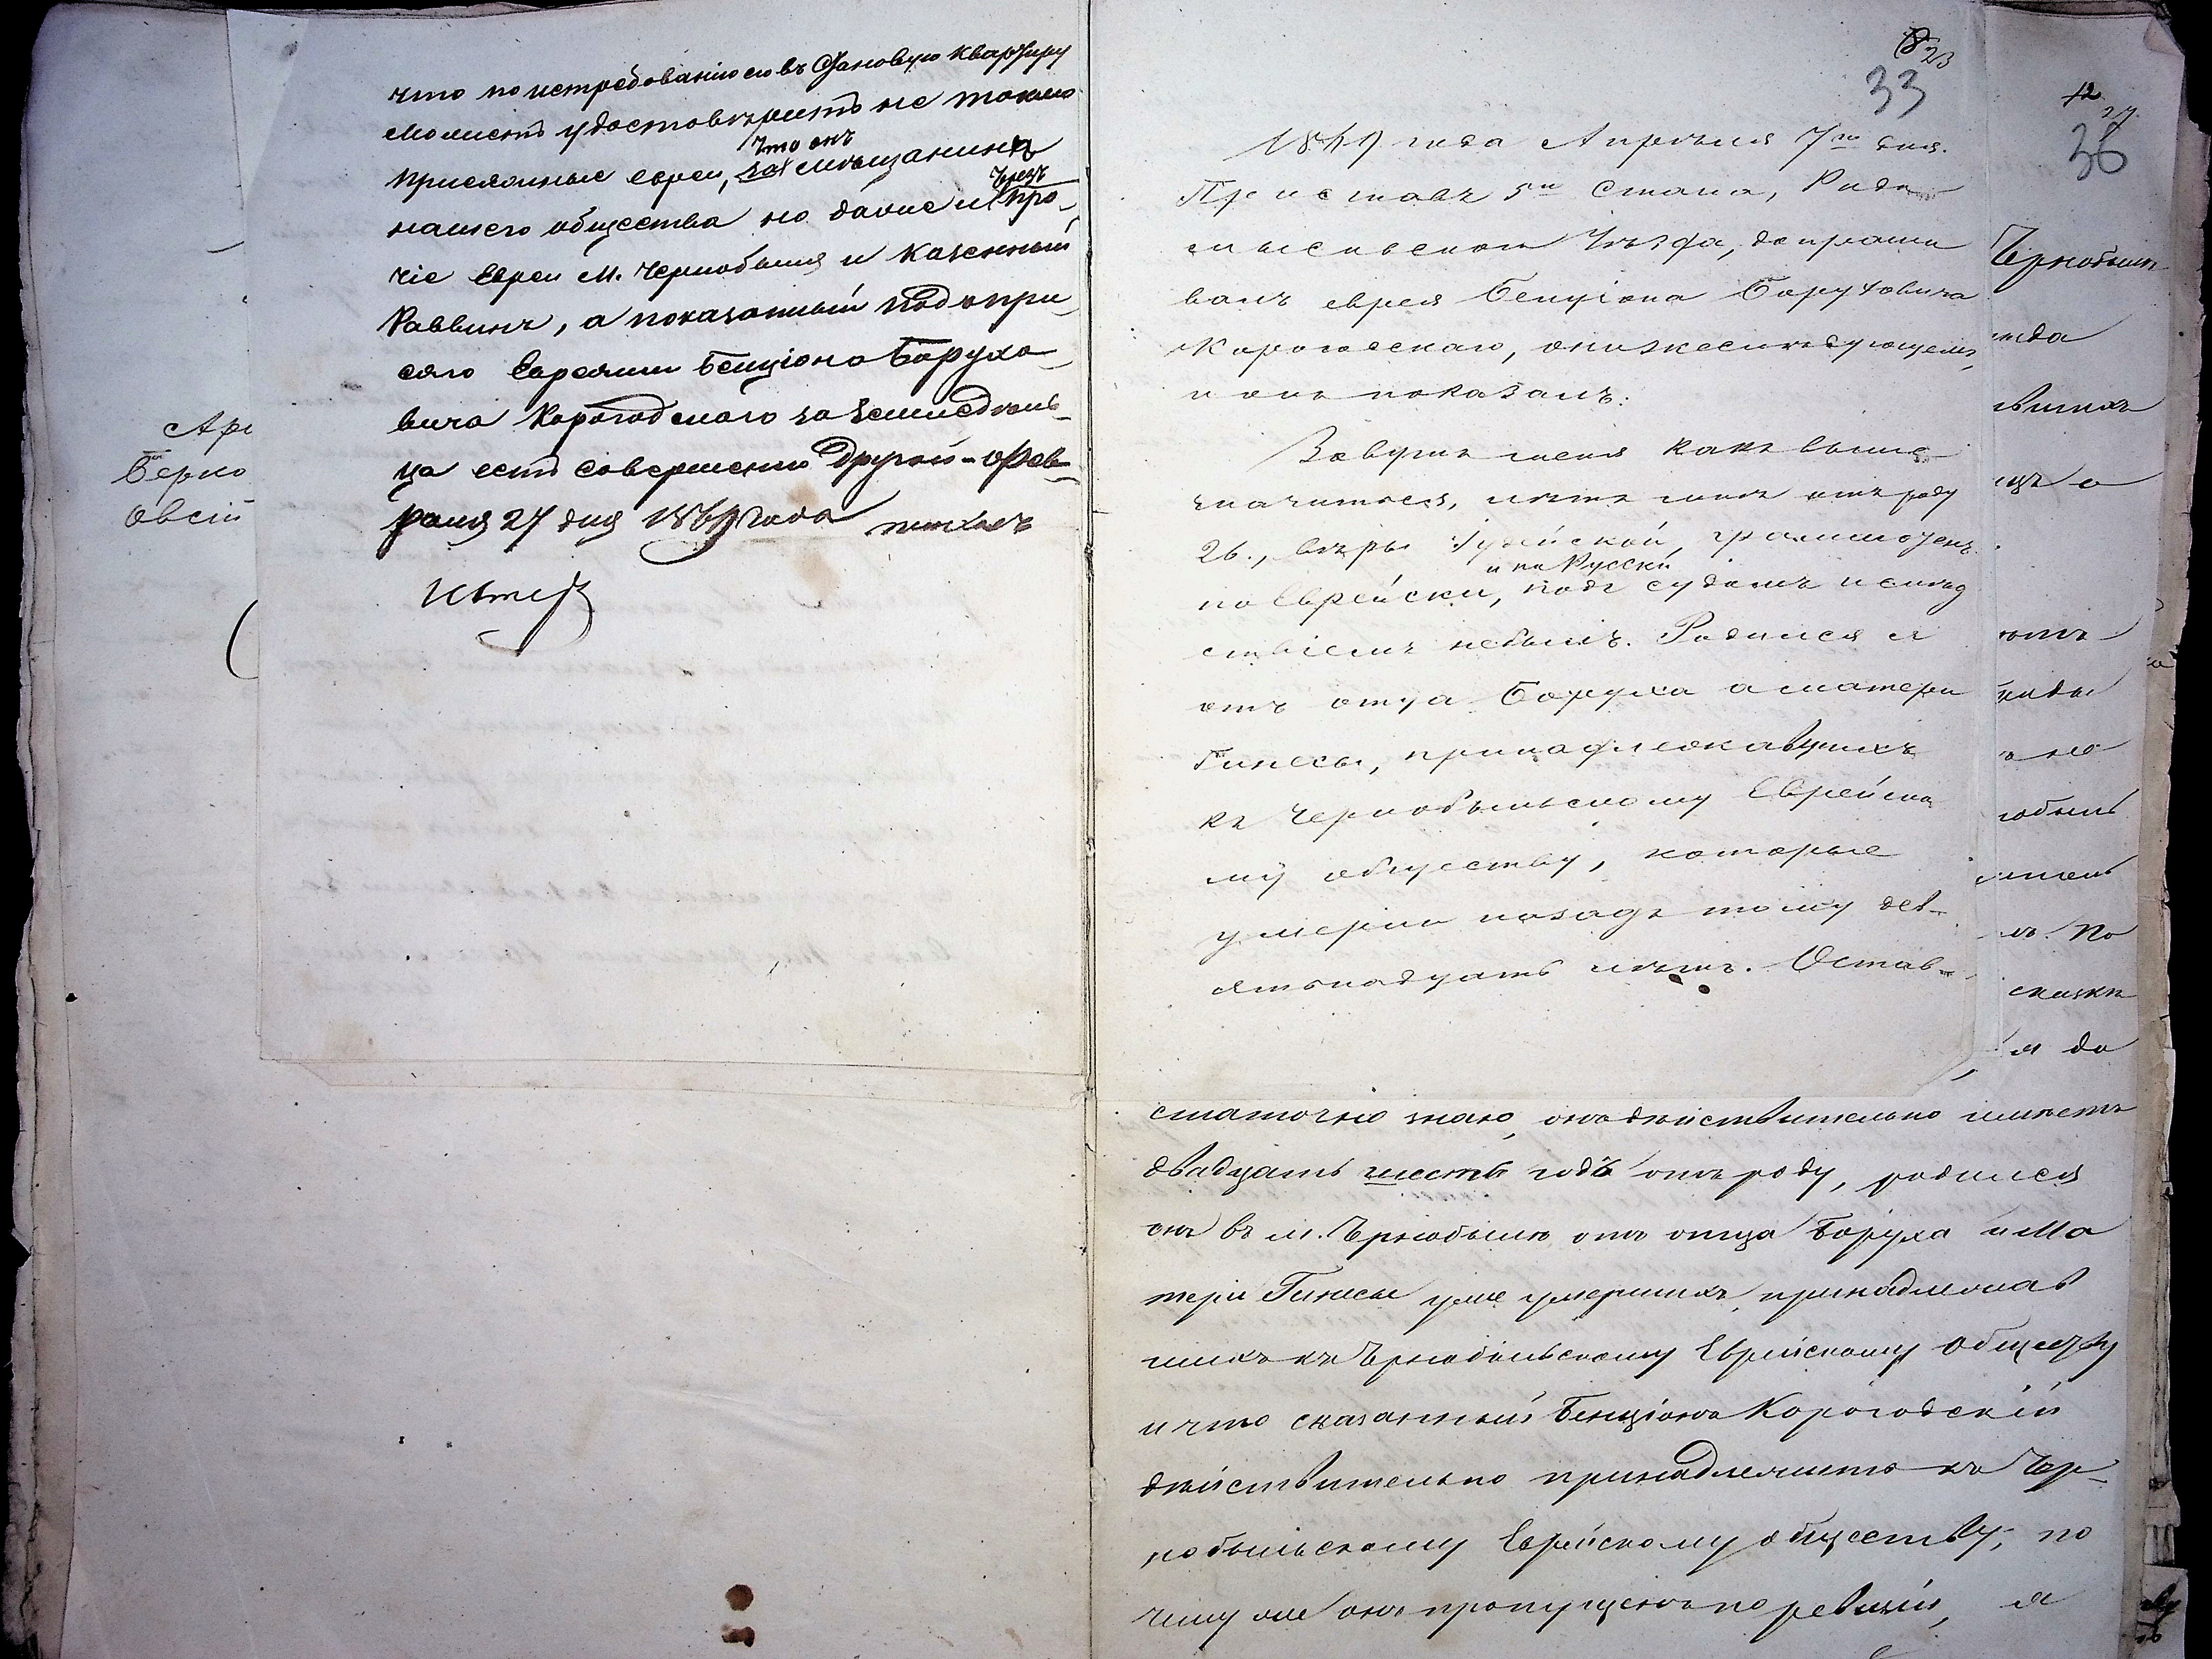 что по истребованію ево въ Становую Квартиру
может удостоверить не токмо
что онъ
присяжные евреи, за мещанина
чрезъ
нашего общества но даже и про-
чіе Евреи М. Чернобыля и казенный
Раввинъ, а показанный под при
сяго Евреями Бенціона Борухо-
вича Корогодского за земледель-
ца есть совершенно другой - Фев-
раля 27 дня 1869 года
Арі
Берко
Овсій
23
33
1869 года Апреля 7го дня.
Приставъ 5го Стана, Радо-
мысльскаго Уезда, допраши
валъ еврея Бенціона Боруховича
Корогодскаго, о нижеследующемъ,
и онъ показалъ:
Зовутъ меня какъ выше
значится, летъ мне отъ роду
26., веры Іудейской, грамотенъ
и по Русски
по Еврейски, подъ судомъ и след
ствіемъ небылъ. Родился я
отъ отца Боруха а матери
Гинесы, принадлежавшихъ
къ Чернобыльскому Еврейско
му обществу, которые
умерли назадъ тому дев-
ятьнадцать летъ. Остав-
12
27
36
Чернобыль
скажк
я до
статочно знаю, онъ действительно имеетъ
двадцать шесть годъ отъ роду, родился
онъ въ м. Чрнобыле отъ отца Боруха и Ма
тери Гинесы уже умершихъ, принадлежав
шихъ къ Чрнобыльскому Еврейскому Обществу
и что сказанный Бенціонъ Корогодскій
действительно принадлежитъ къ Чер-
нобыльскому Еврейскому обществу, по
чему же онъ пропущенъ по ревизіи, я